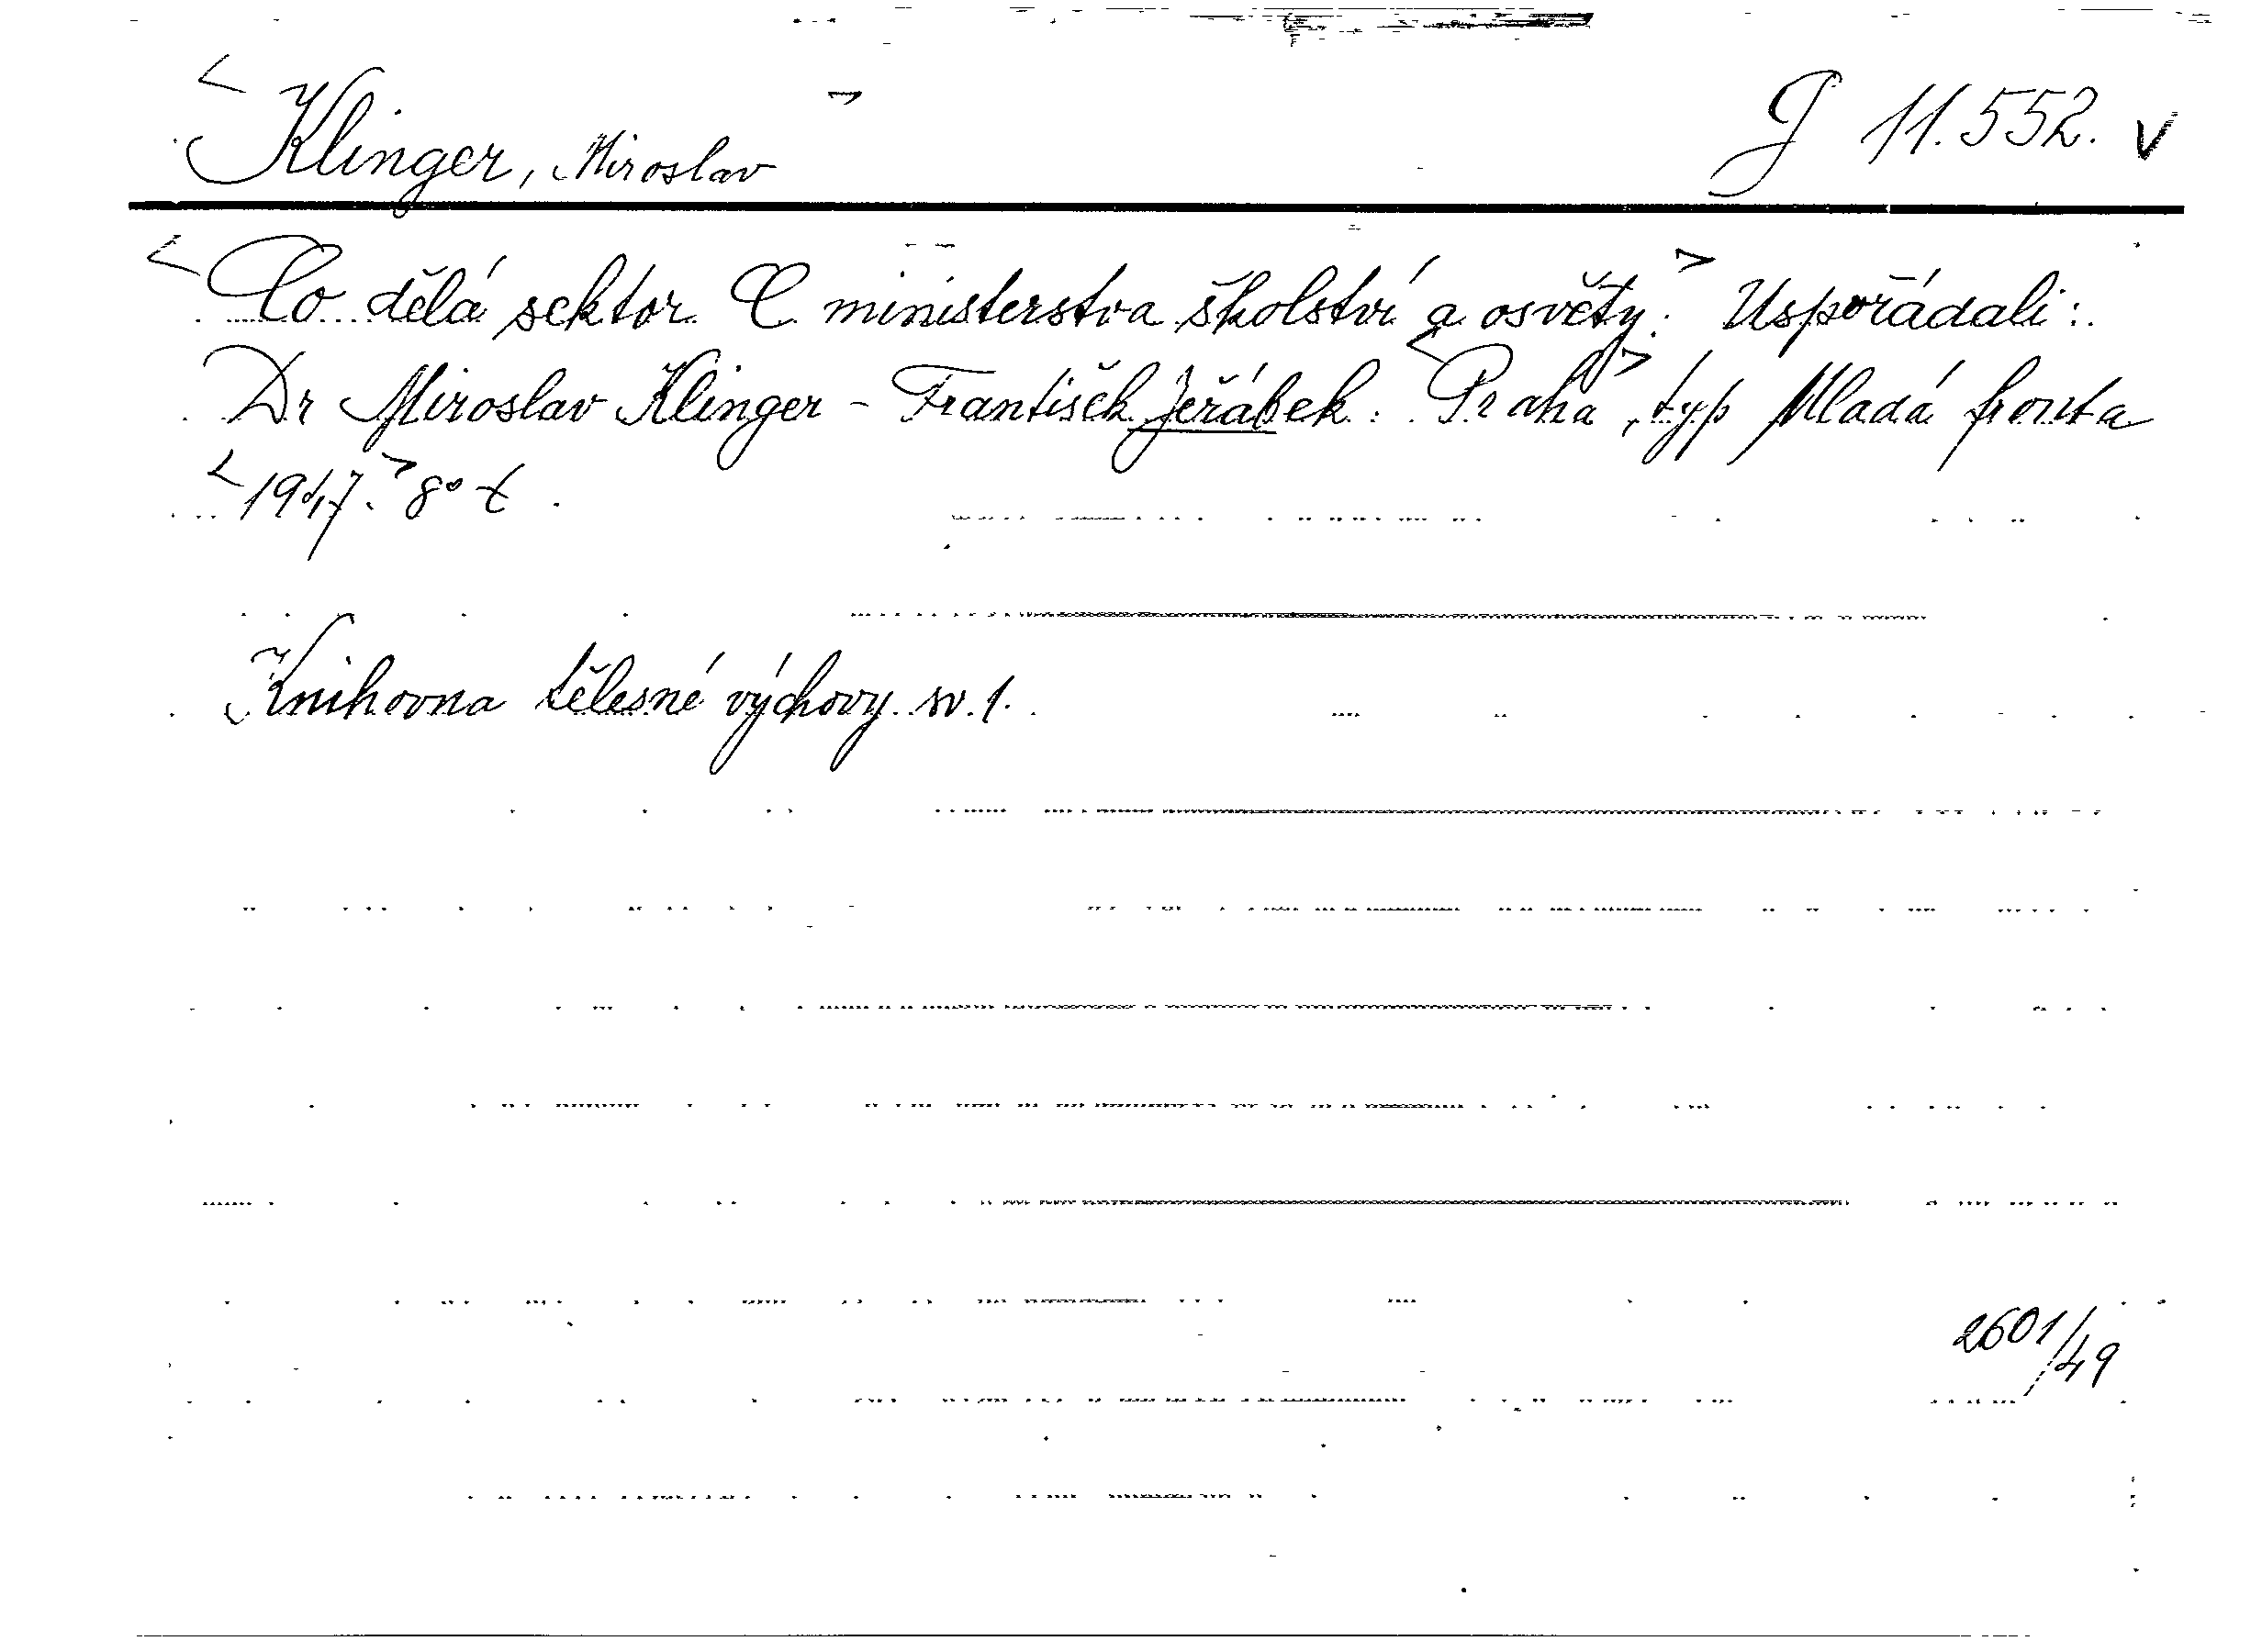 < Klinger, Miroslav > J 11.552. v
< Co dělá sektor C ministerstva školství a osvěty. > Uspořádali:
Dr Miroslav Klinger - František Jeřábek. < Praha >, typ Mladá fronta
< 1947. > 8° t.
Knihovna tělesné výchovy sv. 1.
2601/49